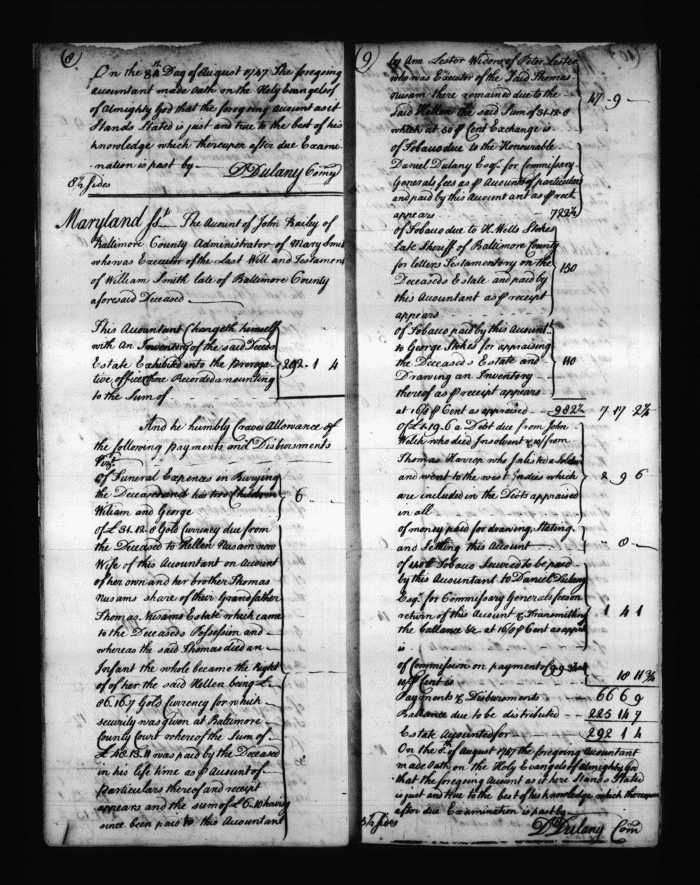 (8)
On the 3d Day of August 1747 The foregoing
accountant made Oath on the Holy Evangels of
of Almighty God that the foregoing Account as it
Stands Stated is just and true to the best of his
knowledge which thereupon after due Exami
nation is past by — D Dulany Comry
8½ sides
Maryland Ss. The Account of John Bailey of
Baltimore County Administrator of Mary Smith
who was Executor of the Last Will and Testament
of William Smith late of Baltimore County
aforesaid Deceased
This Accountant Chargeth himself
with An Inventory of the said Deceds
Estate Exhibited into the Preroga
tive office & here Recorded amounting
to the Sum of
292 " 1 " 4
And he humbly Craves Allowance of
the following payments and Disbursments
Vizt.
Of Funeral Expences in Burying
the Deceased and his two Children
William and George
6 " –
Of £ 31.12.8 Gold Currency due from
the Deceased to Hellen Nusam now
Wife of this Accountant on Account
of her own and her brother Thomas
Nusams share of their Grandfather
Thomas Nusams Estate which came
to the Deceaseds Possession and
whereas the said Thomas died an
Infant the whole became the right
of of her the said Hellen being £
86.16.7 Gold Currency for which
security was given at Baltimore
County Court whereof the Sum of
£ 48.13.11 was paid by the Deceased
in his life time as p Account of
Particulars thereof and receipt
appears and the sum of £ 6.10 having
since been paid to this Accountant
(9)
by Ann Lester Widow of Peter Lester
who was Executor of the said Thomas
Nusam there remained due to the
said Hellen the said Sum of 31.12.8
which at 50 p Cent Exchange is
47 " 9 –
of Tobacco due to the Honourable
Daniel Dulany Esqr. for Commissary
Generals fees as p Account of particulars
and paid by this Accountant as p rect
appears 722½
of Tobacco due to N. Wells Stokes
late Sheriff of Baltimore County
for letters Testamentory on the
Deceaseds Estate and paid by
this Accountant as p receipt
appears
150
of Tobacco paid by this Accountt
to George Stokes for appraising
the Deceaseds Estate and
Drawing an Inventory
thereof as p receipt appears
110
at 16/ p Cent as appraised 982½ 7 17 2½
Of £ 2.9.6 a Debt due from John
Welch who died Insolvent & from
Thomas Harrop who Inlisted a Soldier
and went to the west Indies which
are included in the Debts appraised
in all
2 9 6
of money paid for drawing, Stating
and Settling this Account
" 8 –
of Tobacco Secured to be paid
by this Accountant to Daniel Dulany
Esqr. for Commissary Generals fees on
return of this Account & Transmitting
the ballance &c. at 16/ p Cent as appra
is
1 4 1
of Commission on payment of £ 9.3¾ at
10 p Cent is
18 11¾
Payments & Disbursments 66 6 9
Ballance due to be distributed 225 14 7
Estate Accounted for 292 1 4
On the of August 1747 the foregoing Accountant
made Oath on the Holy Evangels of Almighty God
that the foregoing Account as it here Stands Stated
is just and true to the best of his knowledge which thereupon
after due Examination is past by
5½ sides
D Dulany Com